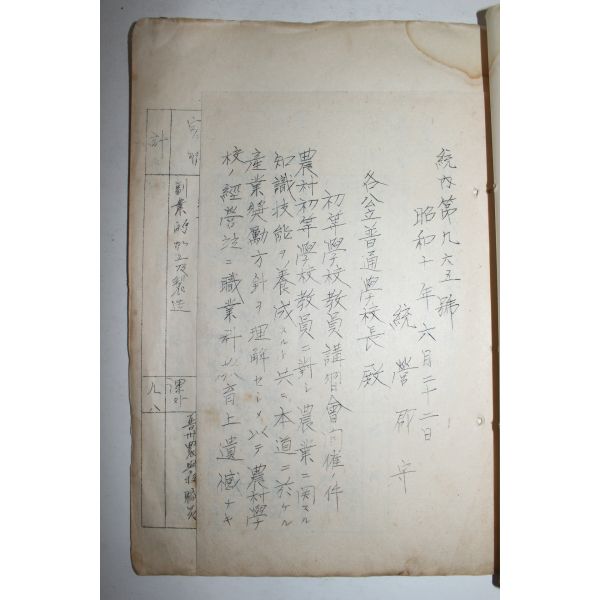 統內第九六五號
昭和十年六月二十二日
統營郡守
各公立普通學校長殿
初等學校教員講習會開催ノ件
農村初等學校教員ニ對シ農業ニ関スル
知識技能ヲ養成スルト共ニ本道ニ於ケル
產業奬勵方針ヲ理解セシメ以テ農村學
校ノ經營竝ニ職業科教育上遺憾ナキ
實習
計
副業的加工及製造
課外
九八
晋州農業學校職員